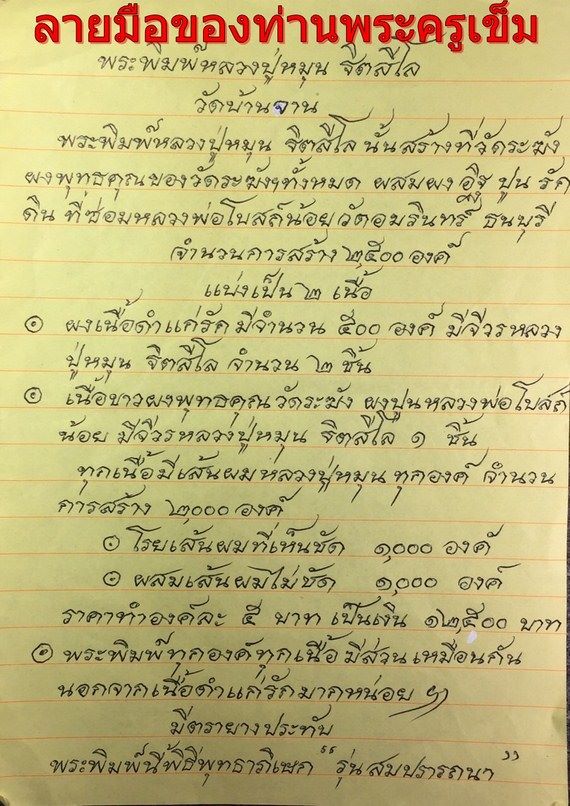 ลายมือของท่านพระครูเข็ม
พระพิมพ์หลวงปู่หมุน ฐิตสีโล
วัดบ้านจาน
พระพิมพ์หลวงปู่หมุน ฐิตสีโล นั้นสร้างที่วัดระฆัง
ผงพุทธคุณของวัดระฆังฯทั้งหมด ผสมผง อิฐ ปูน รัก
ดิน ที่ซ่อมหลวงพ่อโบสถ์น้อย วัดอมรินทร์ ธนบุรี
จำนวนการสร้าง ๒,๕๐๐ องค์
แบ่งเป็น ๒ เนื้อ
๑ ผงเนื้อดำแก่รัก มีจำนวน ๕๐๐ องค์ มีจีวรหลวง
ปู่หมุน ฐิตสีโล จำนวน ๒ ชิ้น
๒ เนื้อขาวผงพุทธคุณ วัดระฆัง ผงปูนหลวงพ่อโบสถ์
น้อย มีจีวรหลวงปู่หมุน ฐิตสีโล ๑ ชิ้น
ทุกเนื้อมีเส้นผมหลวงปู่หมุน ทุกองค์ จำนวน
การสร้าง ๒,๐๐๐ องค์
๑ โรยเส้นผมที่เห็นชัด ๑,๐๐๐ องค์
๑ ผสมเส้นผมไม่ชัด ๑,๐๐๐ องค์
ราคาทำองค์ละ ๕ บาท เป็นเงิน ๑๒,๕๐๐ บาท
๑ พระพิมพ์ทุกองค์ทุกเนื้อ มีส่วนเหมือนกัน
นอกจากเนื้อดำแก่รักมากหน่อย
มีตรายางประทับ
พระพิมพ์นี้พิธีพุทธาภิเษก “รุ่น สมปรารถนา”